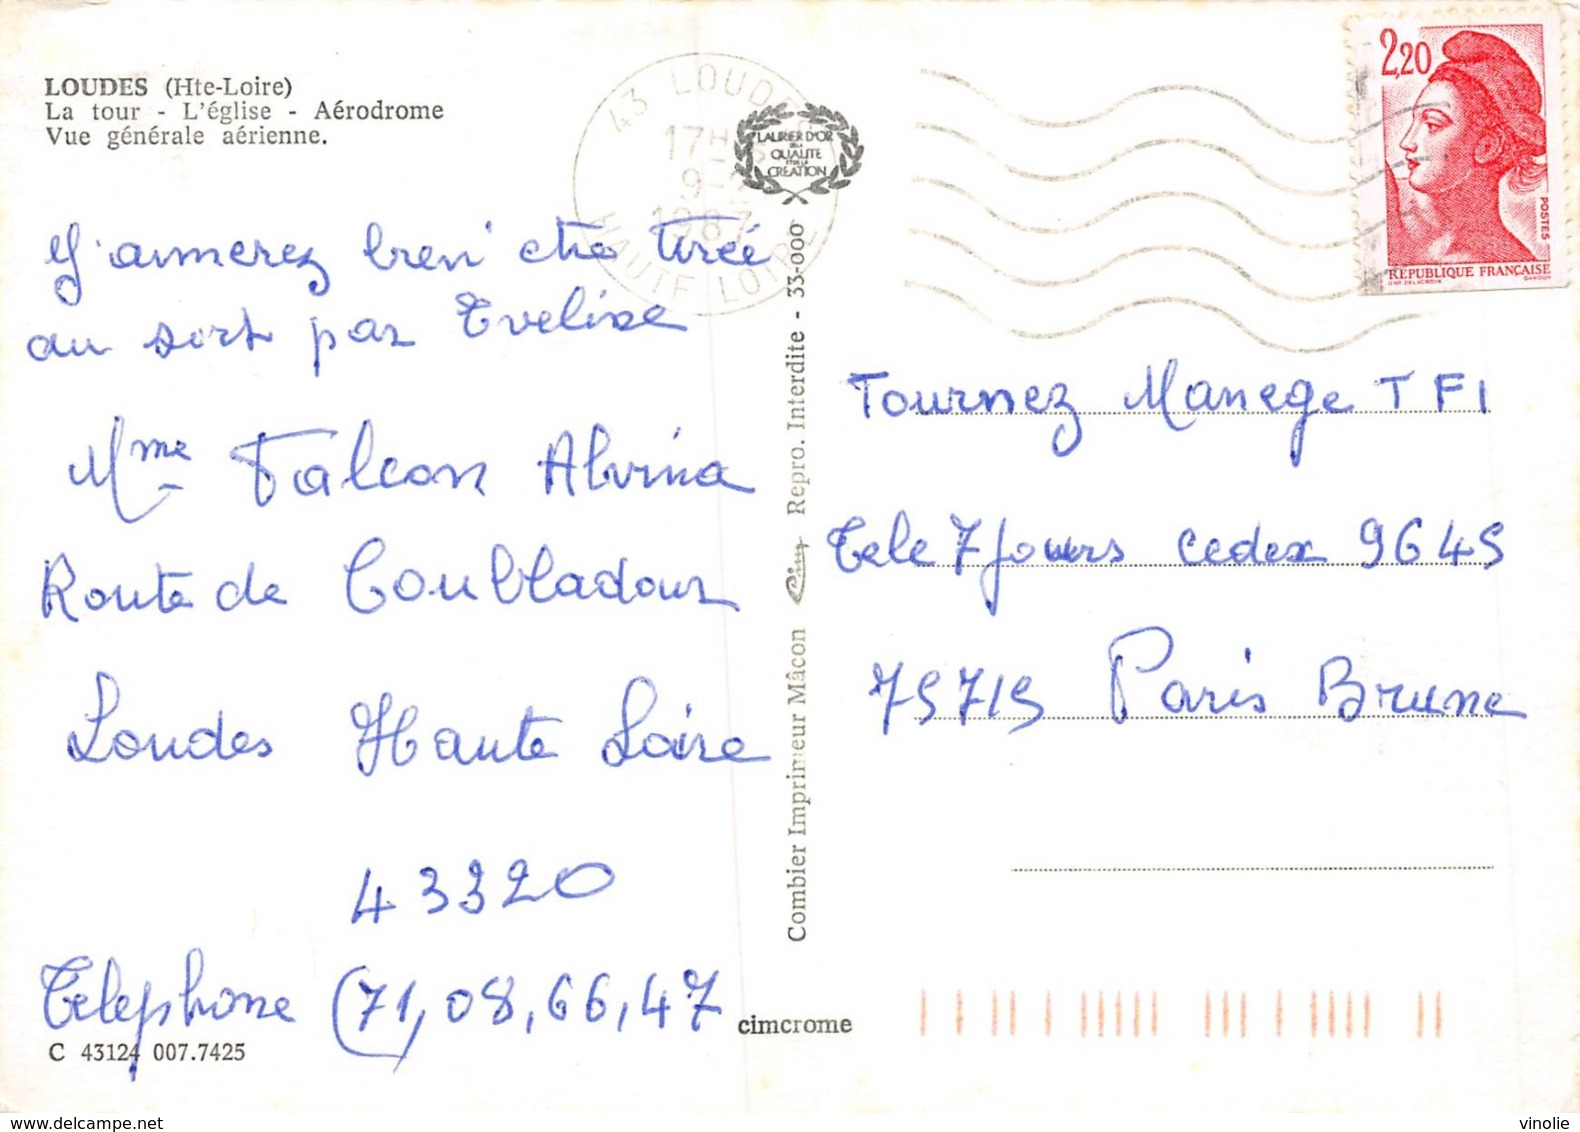 LOUDES (Hte-Loire)
La tour - L'église - Aérodrome
Vue générale aérienne.
43 LOUDES
17H
9-
1987
HAUTE LOIRE
LAURIER D'OR
DE LA
QUALITE
ET DE LA
CREATION
2,20
POSTES
RÉPUBLIQUE FRANÇAISE
D'AP. DELACROIX
GANDON
J'aimerez bien etre tireé
au sort par Evelise
Mme Falcon Alvina
Route de Coubladour
Loudes Haute Loire
43320
Telephone (71,08,66,47
C 43124 007.7425
Combier Imprimeur Mâcon Cim Repro. Interdite - 33-000
cimcrome
Tournez Manege TF1
Tele 7 Jours cedex 9645
75715 Paris Brune
www.delcampe.net
vinolie